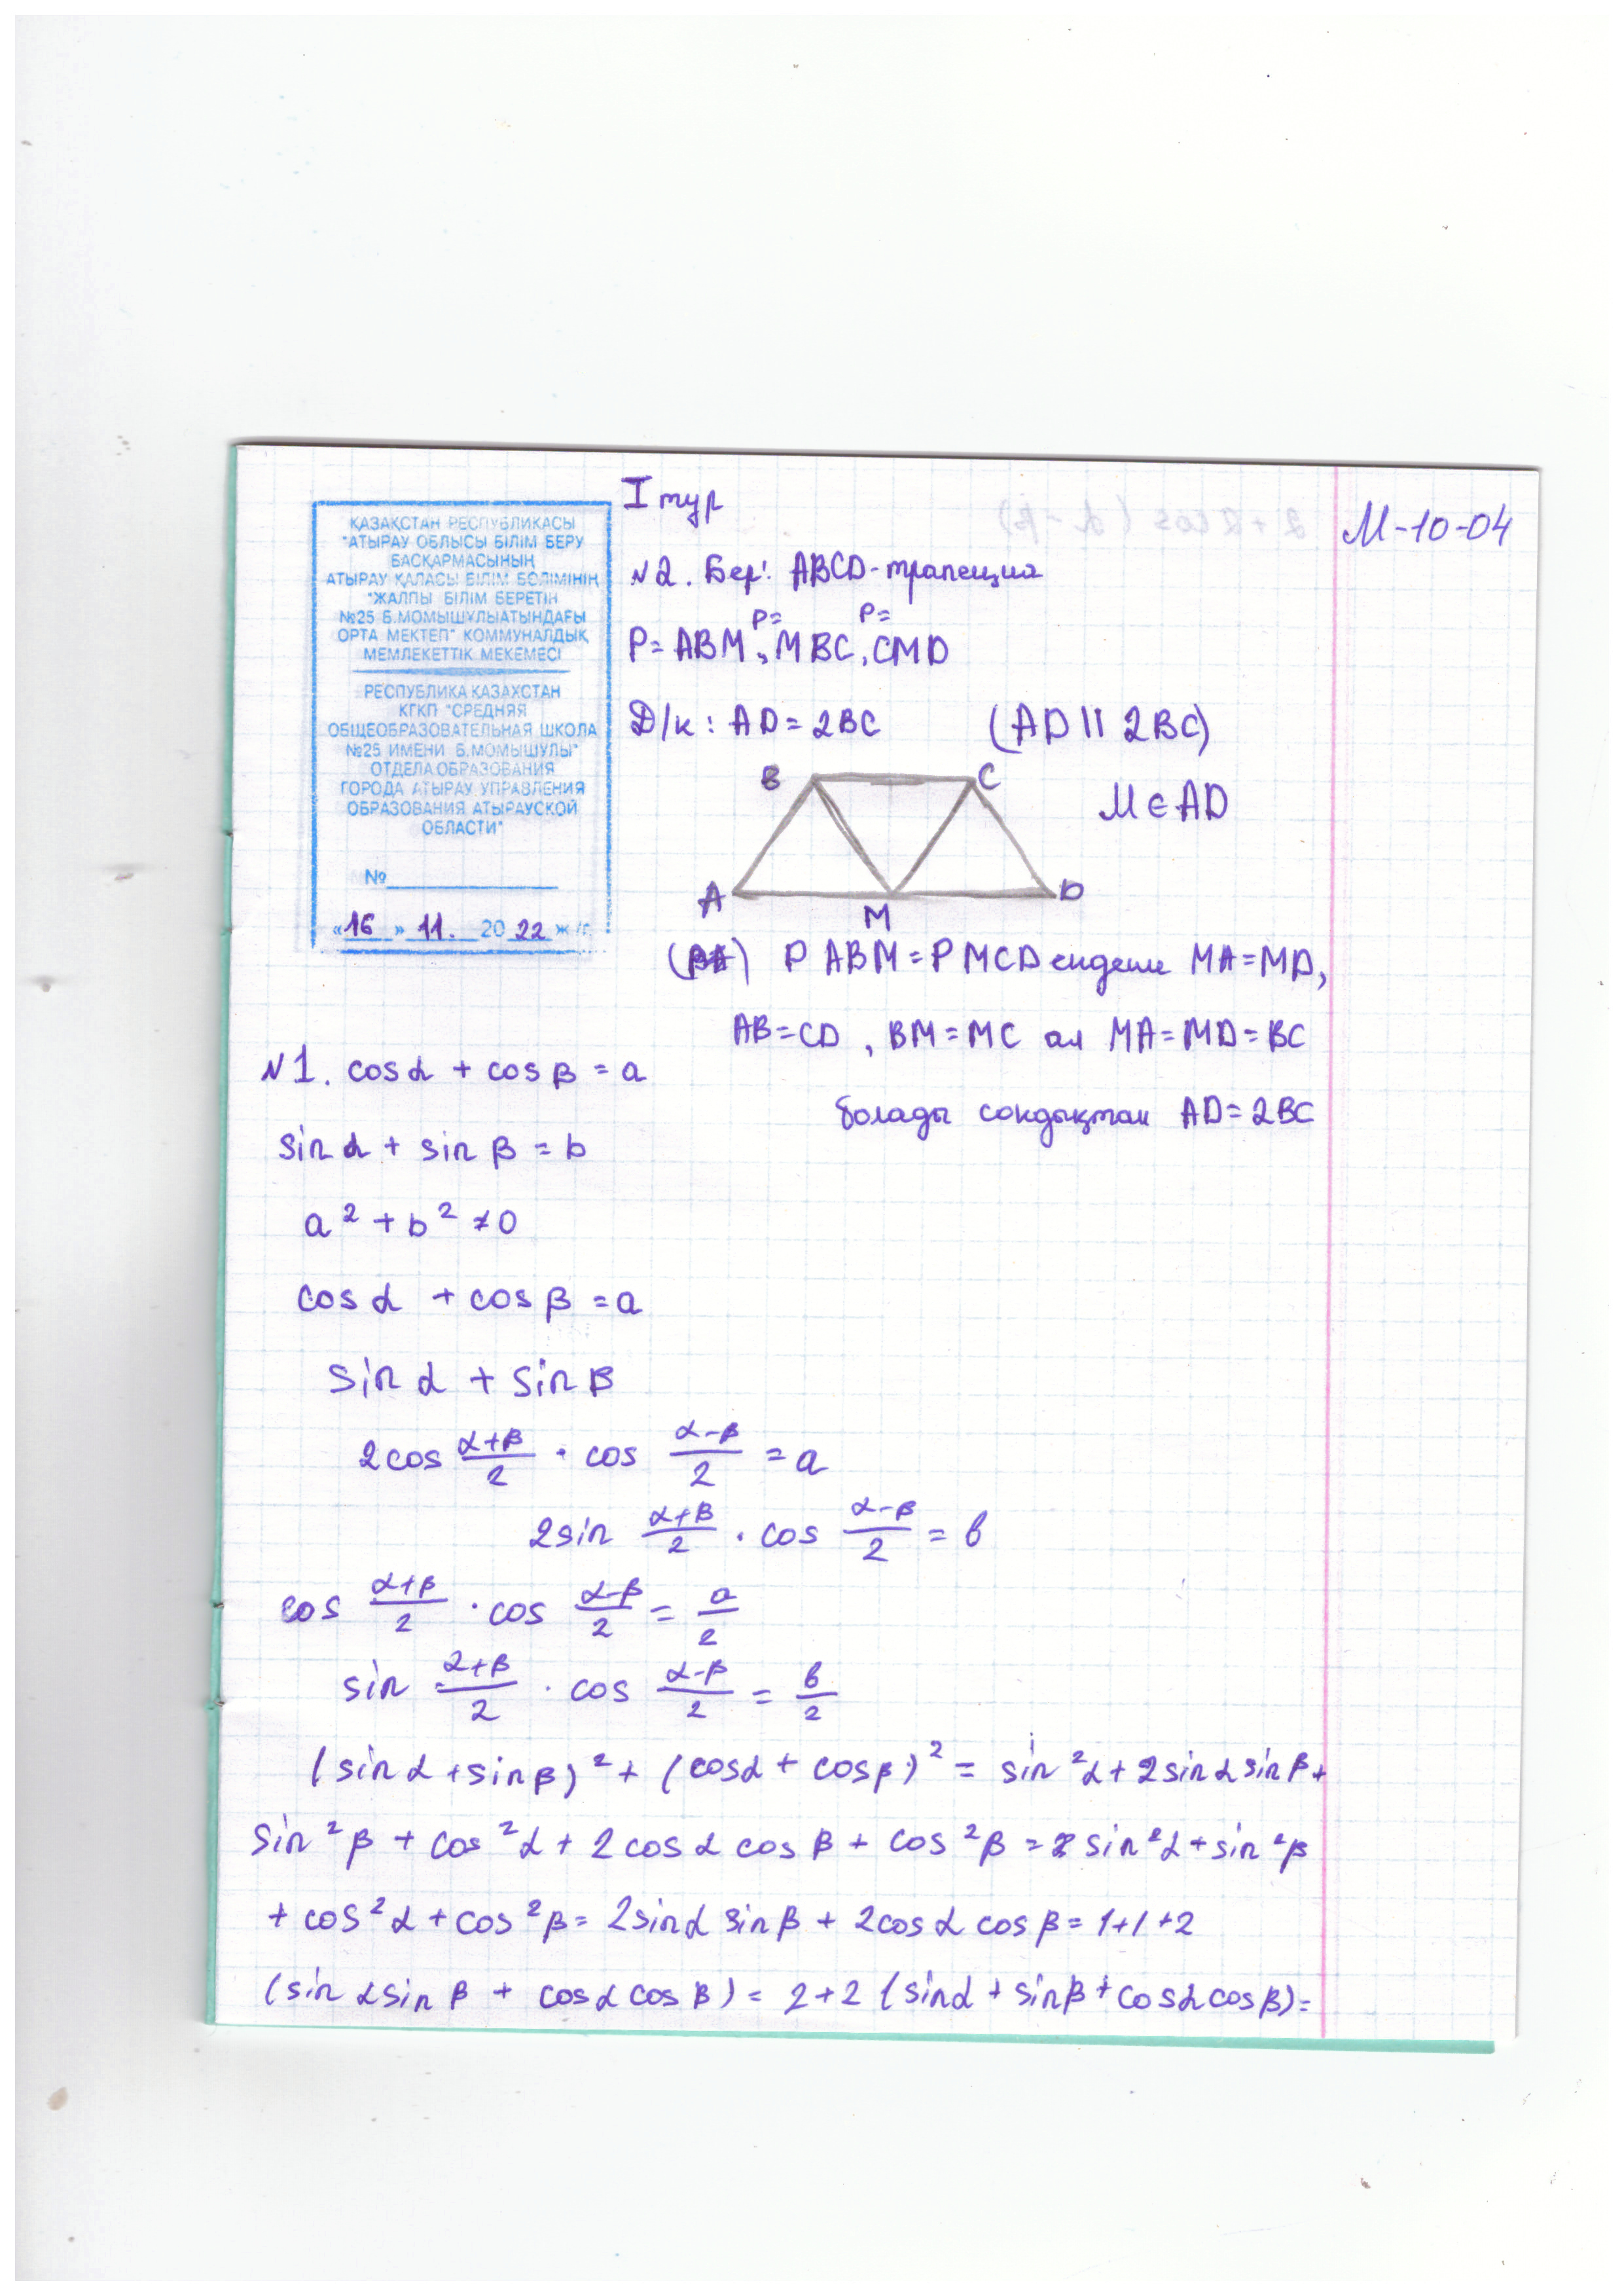 I тур
M-10-04
ҚАЗАҚСТАН РЕСПУБЛИКАСЫ
"АТЫРАУ ОБЛЫСЫ БІЛІМ БЕРУ
БАСҚАРМАСЫНЫҢ
АТЫРАУ ҚАЛАСЫ БІЛІМ БӨЛІМІНІҢ
"ЖАЛПЫ БІЛІМ БЕРЕТІН
№25 Б.МОМЫШҰЛЫАТЫНДАҒЫ
ОРТА МЕКТЕП" КОММУНАЛДЫҚ
МЕМЛЕКЕТТІК МЕКЕМЕСІ
РЕСПУБЛИКА КАЗАХСТАН
КГКП "СРЕДНЯЯ
ОБЩЕОБРАЗОВАТЕЛЬНАЯ ШКОЛА
№25 ИМЕНИ Б.МОМЫШУЛЫ"
ОТДЕЛА ОБРАЗОВАНИЯ
ГОРОДА АТЫРАУ УПРАВЛЕНИЯ
ОБРАЗОВАНИЯ АТЫРАУСКОЙ
ОБЛАСТИ"
№
«16» 11. 2022 ж/г.
N2. Бер: ABCD-трапеция
P= P=
P=ABM, MBC, CMD
Д/к: AD=2BC (AD || 2BC)
B C M∈AD
A M D
P ABM=P MCD ендеше MA=MD,
AB=CD, BM=MC ал MA=MD=BC
болады сондықтан AD=2BC
N1. cosα + cosβ = a
sinα + sinβ = b
a² + b² ≠ 0
cosα + cosβ = a
sinα + sinβ
2cos (α+β)/2 · cos (α-β)/2 = a
2sin (α+β)/2 · cos (α-β)/2 = b
cos (α+β)/2 · cos (α-β)/2 = a/2
sin (α+β)/2 · cos (α-β)/2 = b/2
(sinα + sinβ)² + (cosα + cosβ)² = sin²α + 2sinα sinβ +
sin²β + cos²α + 2cosα cosβ + cos²β = sin²α + sin²β
+ cos²α + cos²β = 2sinα sinβ + 2cosα cosβ = 1+1+2
(sinα sinβ + cosα cosβ) = 2+2 (sinα + sinβ + cosα cosβ) =